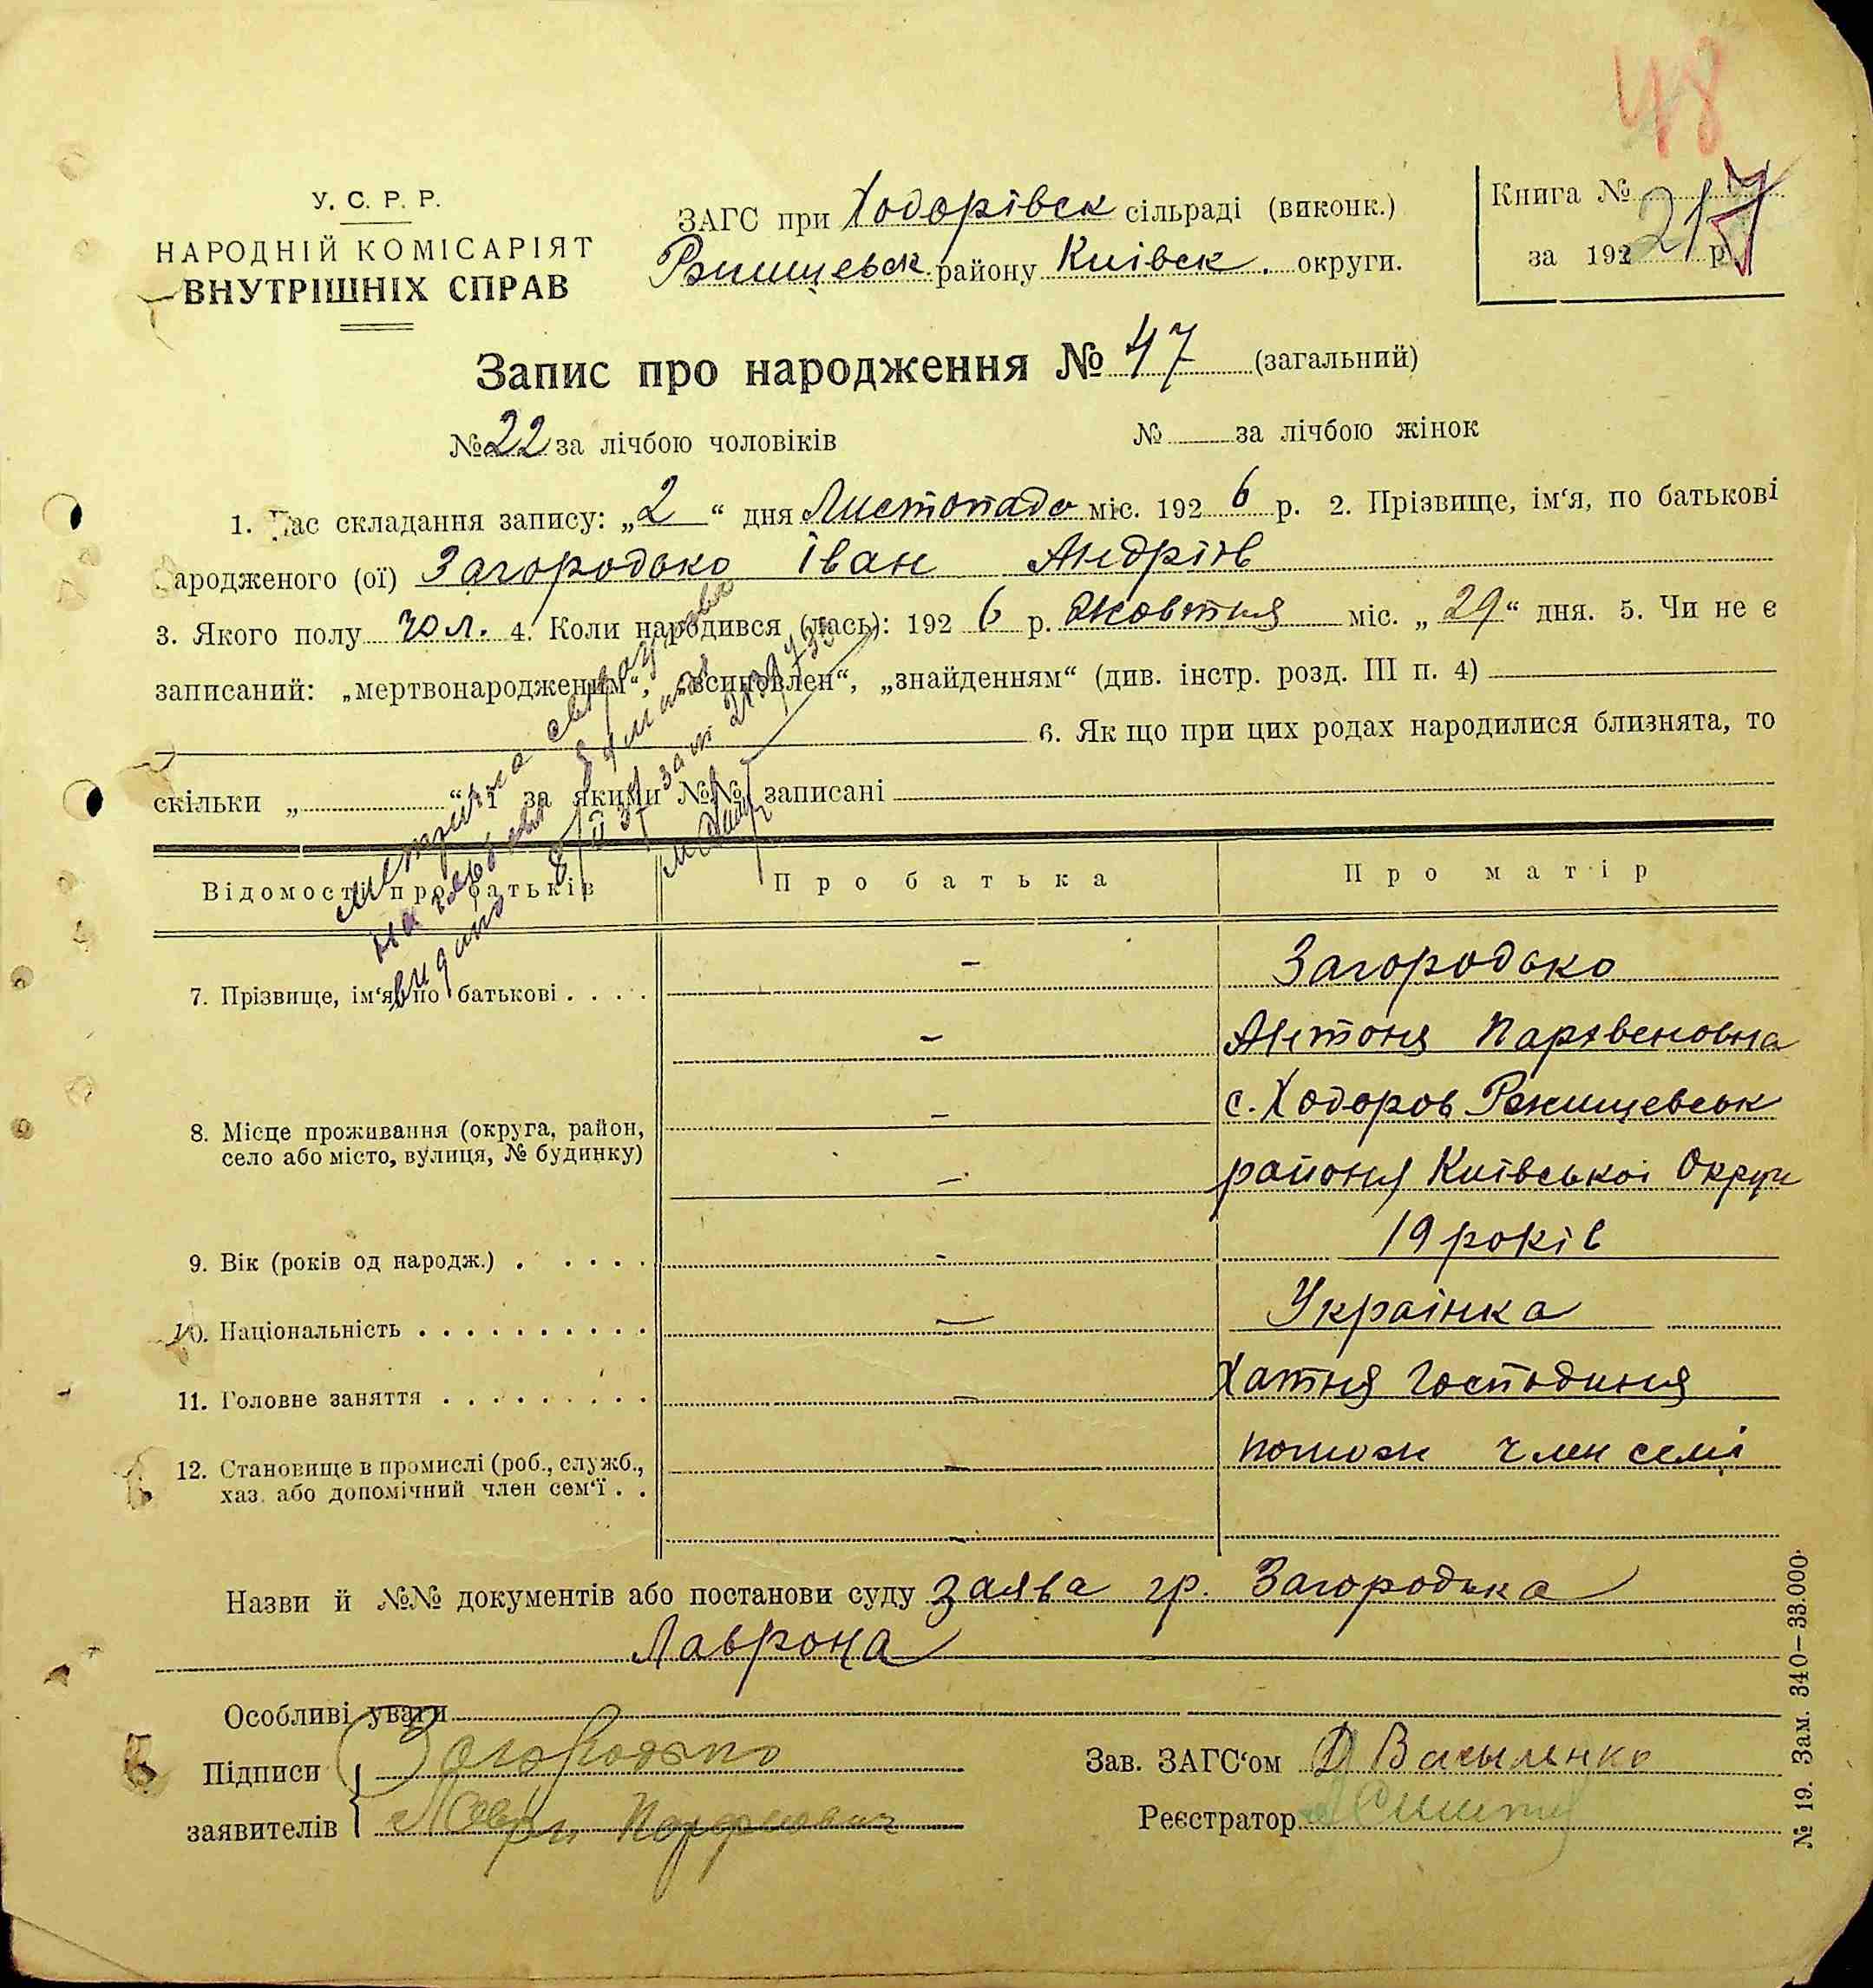 48
У. С. Р. Р.
НАРОДНІЙ КОМІСАРІЯТ
ВНУТРІШНІХ СПРАВ
ЗАГС при Ходорівск сільраді (виконк.)
Ржищевск. району Київск. округи.
Книга № 217
за 192 р.
Запис про народження № 47 (загальний)
№ 22 за лічбою чоловіків № за лічбою жінок
1. Час складання запису: „2“ дня Листопада міс. 1926 р. 2. Прізвище, ім‘я, по батькові
народженого (ої) Загородько Іван Андріїв
3. Якого полу чол. 4. Коли народився (лась): 1926 р. Жовтня міс. „29“ дня. 5. Чи не є
записаний: „мертвонародженим“, „всиновлен“, „знайденням“ (див. інстр. розд. III п. 4)
6. Як що при цих родах народилися близнята, то
скільки „ “ і за якими №№ записані
метрична
видано
Відомості про батьків Про батька Про матір
7. Прізвище, ім‘я, по батькові . . . . - Загородько
- Антоня Пархвеновна
8. Місце проживання (округа, район,
село або місто, вулиця, № будинку)
- с. Ходоров Ржищевськ
- району Київської Округи
9. Вік (років од народж.) . . . . . - 19 років
10. Національність . . . . . . . . . . - Украінка
11. Головне заняття . . . . . . . . . - Хатня господиня
12. Становище в промислі (роб., служб.,
хаз. або допомічний член сем‘ї . .
- помож член семі
-
Назви й №№ документів або постанови суду заява гр. Загородька
Лаврона
Особливі уваги
Підписи Загородько
заявителів Лаврін Парфенович
Зав. ЗАГС‘ом Д Васыленко
Реєстратор
№ 19. Зам. 340—33.000.